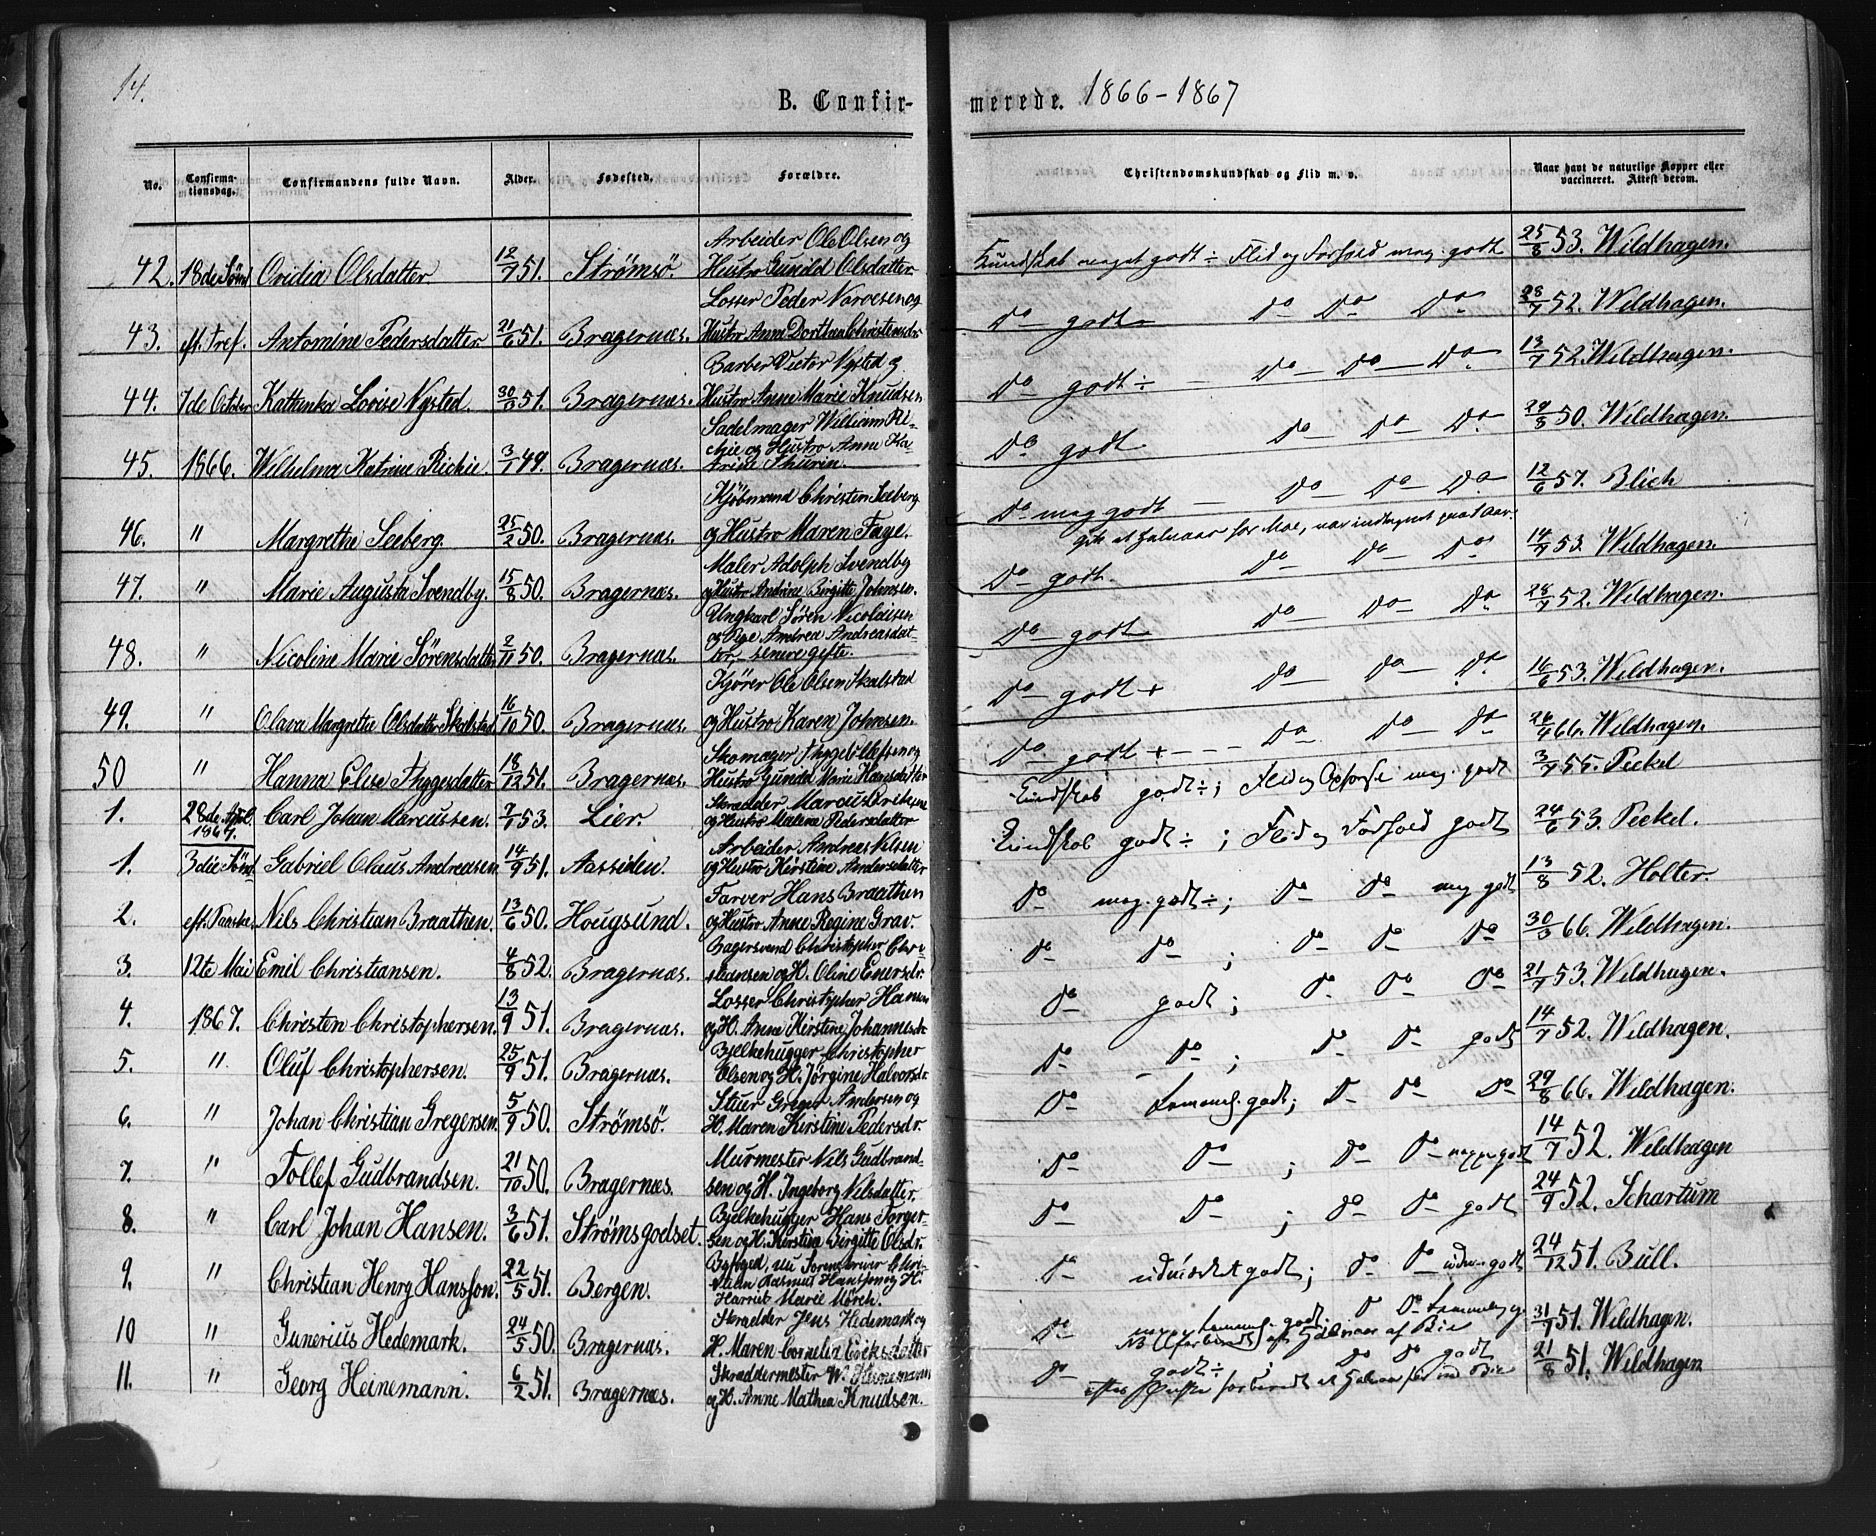 14.
B. Confirmerede. 1866-1867
No. Confirmationsdag. Confirmandens fulde Navn. Alder. Fødested. Forældre. Christendomskundskab og Flid m. v. Naar havt de naturlige Kopper eller vaccineret. Attest derom.
Arbeider Ole Olsen og
42. 18de Sønd Ovidia Olsdatter. 12/7 51. Strømsö. Hustro Gunild Olsdatter Kundskab meget godt ÷ Flid og Forhold meg. godt 25/8 53. Wildhagen.
Losser Peder Narvesen og
43. eft. Tref. Antomine Pedersdatter 21/6 51. Bragernæs. Hustro Anne Dorthea Christensdr. Do godt Do Do Do 28/7 52. Wildhagen.
Barber Victor Nysted og
44. 7de October Kathenka Lovise Nysted. 51. Bragernæs. Hustro Anne Marie Knudsen Do godt ÷ Do Do Do 13/7 52. Wildhagen.
Sadelmager William Ri-
chie og Hustro Anne Ka-
45. 1866. Wilhelma Katrine Richie 3/1 49. Bragernæs. trine Thurin. Do godt Do Do Do 50. Wildhagen.
Kjöbmand Christen Seeberg
46. " Margrethe Seeberg. 25/2 50. Bragernæs. og Hustro Maren Fage. Do meg godt Do Do Do 12/6 57. Blich
Maler Adolph Svendby
47. " Marie Augusta Svendby. 15/8 50. Bragernæs. og Hustro Andrine Birgitte Johnsen. Do godt. Do Do Do 14/7 53. Wildhagen.
Ungkarl Sören Nicolaisen
og Pige Andrea Andreasdat-
48. " Nicoline Marie Sörensdatter 2/11 50. Bragernæs. ter, senere gifte. Do godt Do Do Do 28/7 52. Wildhagen.
Kjörer Ole Olsen Skalstad
49. " Olava Margrethe Olsdatter Skalstad 16/10 50. Bragernæs. og Hustro Karen Johnsen. Do godt + Do Do Do 16/6 53. Wildhagen.
Skomager Thyge Ellefsen og
50 " Hanna Elise Thygesdatter 18/12 51. Bragernæs. Hustro Gunild Marie Hansdatter Do godt + Do Do Do 26/4 66. Wildhagen.
Skrædder Marcus Eriksen
1. 28de April 1867. Carl Johan Marcussen. 7/1 53. Lier. og Hustro Malene Pedersdatter Kundskab godt ÷; Flid og meg. godt 3/7 55. Peckel
Arbeider Andreas Nilsen
1. 3die Sönd. Gabriel Olaus Andreasen 14/9 51. Aassiden. og Hustro Kirstine Andersdatter Kundskab godt ÷; Flid og Forhold godt 24/6 53. Peckel.
Farver Hans Braathen
2. eft. Paaske Nils Christian Braathen. 13/6 50. Hougsund. og Hustro Anne Regine Grav. Do meg. godt ÷; Do Do meg godt 13/8 52. Holter.
Bagersvend Christopher Chri
3. 12te Mai Emil Christiansen. 4/8 52. Bragernæs. stiansen og H. Oline Enersdr. Do Do; Do Do Do 66. Wildhagen.
Losser Christopher Hansen
4. 1867. Christen Christophersen. 13/9 51. Bragernæs. og H. Anne Kirstine Johannesdr Do godt; Do Do Do 21/7 53. Wildhagen.
Bjelkehugger Christopher
5. " Oluf Christophersen. 25/9 51. Bragernæs. Olsen og H. Jörgine Halvorsdr. Do Do; Do Do godt 14/7 52. Wildhagen.
Stuer Greger Andersen og
6. " Johan Christian Gregersen. 5/9 50. Strømsö. H. Maren Kirstine Pedersdr. Do temmel. godt; Do Do Do 29/8 66. Wildhagen.
Murmester Nils Gudbrand-
7. " Tollef Gudbrandsen. 21/10 50. Bragernæs. sen og H. Ingeborg Nilsdatter. Do Do; Do Do neppe godt 14/7 52. Wildhagen
Bjelkehugger Hans Torger-
8. " Carl Johan Hansen. 3/6 51. Strømsgodset. sen og H. Kirstine Birgitte Olsdr. Do Do; Do Do godt 24/9 52. Schartum
Byfoged, nu Sorenskriver Chri-
stian Rasmus Hansson og H.
9. " Christian Henry Hansson. 22/5 51. Bergen. Harriet Marie Mörch. Do udmærket godt; Do Do godt 24/12 51. Bull.
Skrædder Jens Hedemark og
10 " Gunerius Hedemark. 24/5 50. Bragernæs. H. Maren Cornelia Eriksdatter Do neppe temmel. godt; Do Do 31/7 51. Wildhagen.
Skræddermester W. Heinemann
11. " Georg Heinemann. 6/2 51. Bragernæs. og H. Anne Mathea Knudsen. Do godt ÷; Do Do godt 21/8 51. Wildhagen